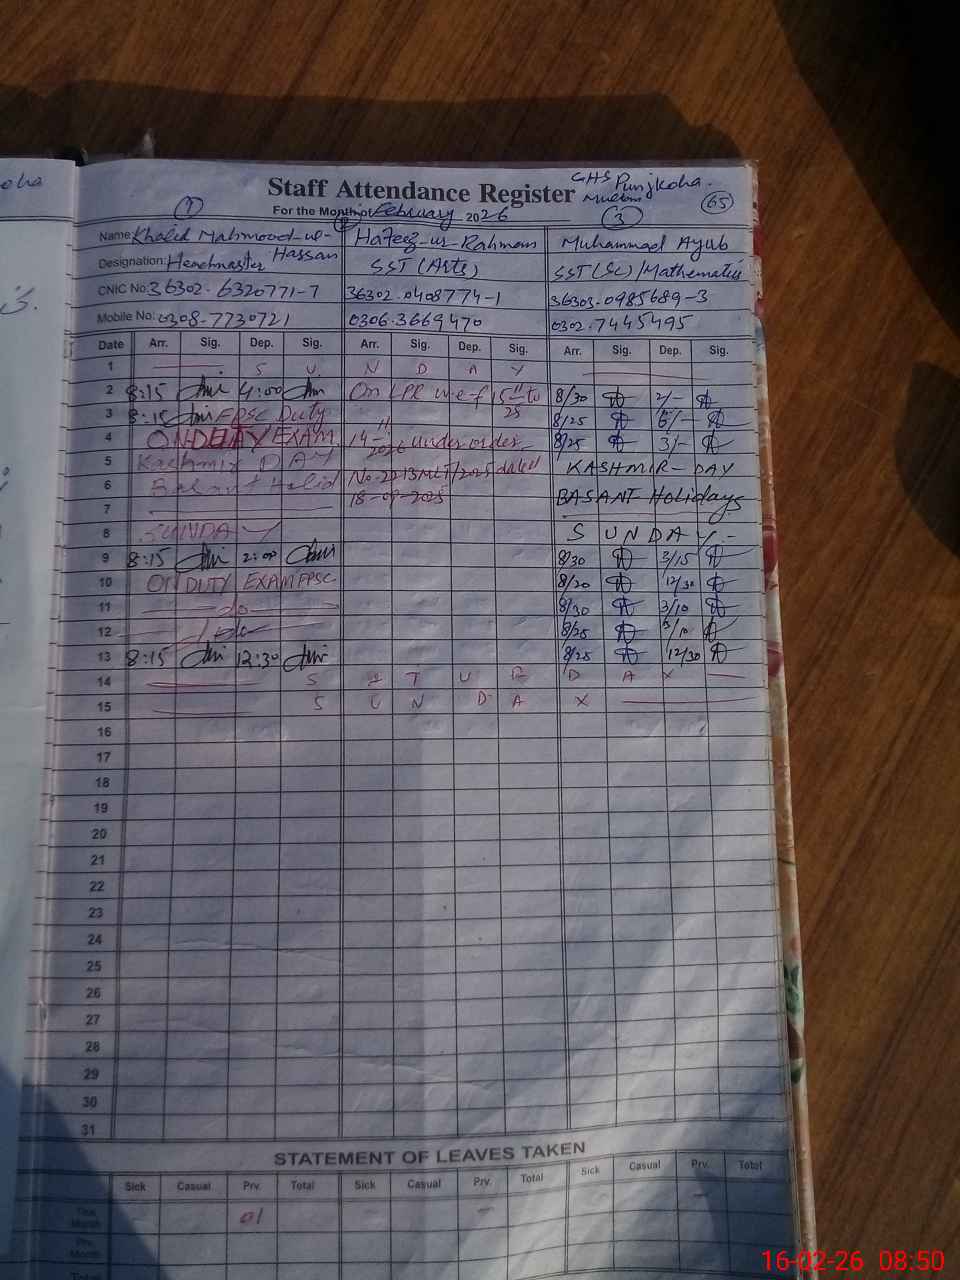 Staff Attendance Register GHS Punjkoha Muslim 65
For the Month of February 2026
1 2 3
Name: Khalid Mahmood-ul-Hassan Hafeez-ur-Rahman Muhammad Ayub
Designation: Headmaster SST (Arts) SST (Sc) / Mathematics
CNIC No: 36302-6320771-7 36302-0408774-1 36303-0985689-3
Mobile No: 0308-7730721 0306-3669470 0302-7445495
Date Arr. Sig. Dep. Sig. Arr. Sig. Dep. Sig. Arr. Sig. Dep. Sig.
1 S U N D A Y
2 8:15 4:00 On LPR w.e.f 15-11 to 25 8/30 2/-
3 8:15 FPSC Duty 8/25
4 ON DUTY EXAM 14-11-2026 under order 8/25 3/-
5 Kashmir DAY KASHMIR - DAY
6 Basant Holid 18-09-2025 BASANT Holidays
7
8 SUNDAY S U N D A Y
9 8:15 2:00 8/30 3/15
10 ON DUTY EXAM FPSC 8/20 12/30
11 do 8/30 3/10
12 do 8/25
13 8:15 12:30 8/25 12/30
14 S A T U R D A Y
15 S U N D A Y
16
17
18
19
20
21
22
23
24
25
26
27
28
29
30
31
STATEMENT OF LEAVES TAKEN
Sick Casual Prv. Total Sick Casual Prv. Total Sick Casual Prv. Total
This Month 01 - -
Prv. Month
Total
16-02-26 08:50